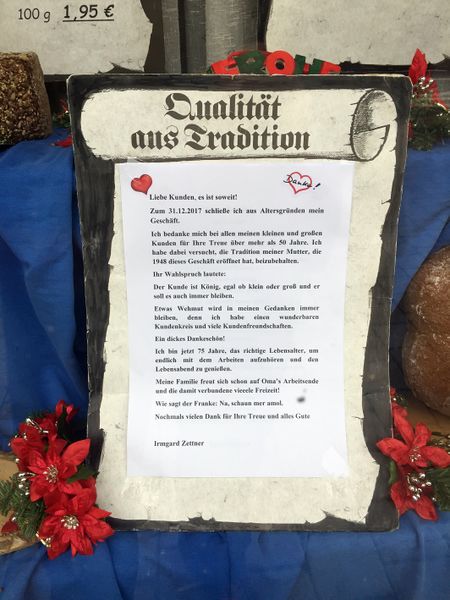 100 g 1,95 €
Qualität
aus Tradition
Danke!
Liebe Kunden, es ist soweit!
Zum 31.12.2017 schließe ich aus Altersgründen mein
Geschäft.
Ich bedanke mich bei allen meinen kleinen und großen
Kunden für Ihre Treue über mehr als 50 Jahre. Ich
habe dabei versucht, die Tradition meiner Mutter, die
1948 dieses Geschäft eröffnet hat, beizubehalten.
Ihr Wahlspruch lautete:
Der Kunde ist König, egal ob klein oder groß und er
soll es auch immer bleiben.
Etwas Wehmut wird in meinen Gedanken immer
bleiben, denn ich habe einen wunderbaren
Kundenkreis und viele Kundenfreundschaften.
Ein dickes Dankeschön!
Ich bin jetzt 75 Jahre, das richtige Lebensalter, um
endlich mit dem Arbeiten aufzuhören und den
Lebensabend zu genießen.
Meine Familie freut sich schon auf Oma's Arbeitsende
und die damit verbundene vieeele Freizeit!
Wie sagt der Franke: Na, schaun mer amol.
Nochmals vielen Dank für Ihre Treue und alles Gute
Irmgard Zettner